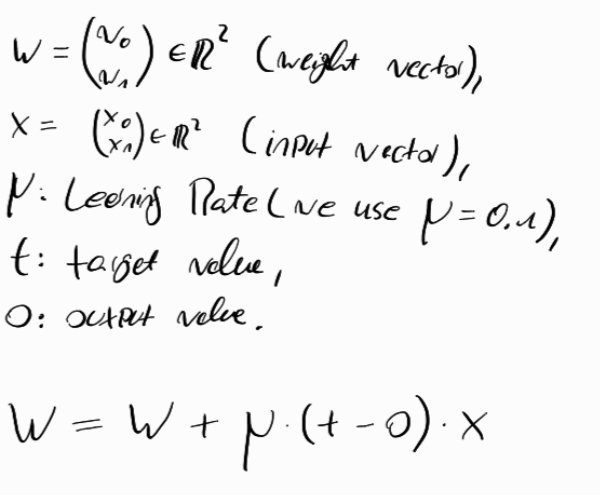 W = (w₀ w₁) ∈ ℝ² (weight vector),
X = (x₀ x₁) ∈ ℝ² (input vector),
μ: Leening Rate (we use μ = 0.1),
t: target value,
O: output value.
W = W + μ · (t - o) · x